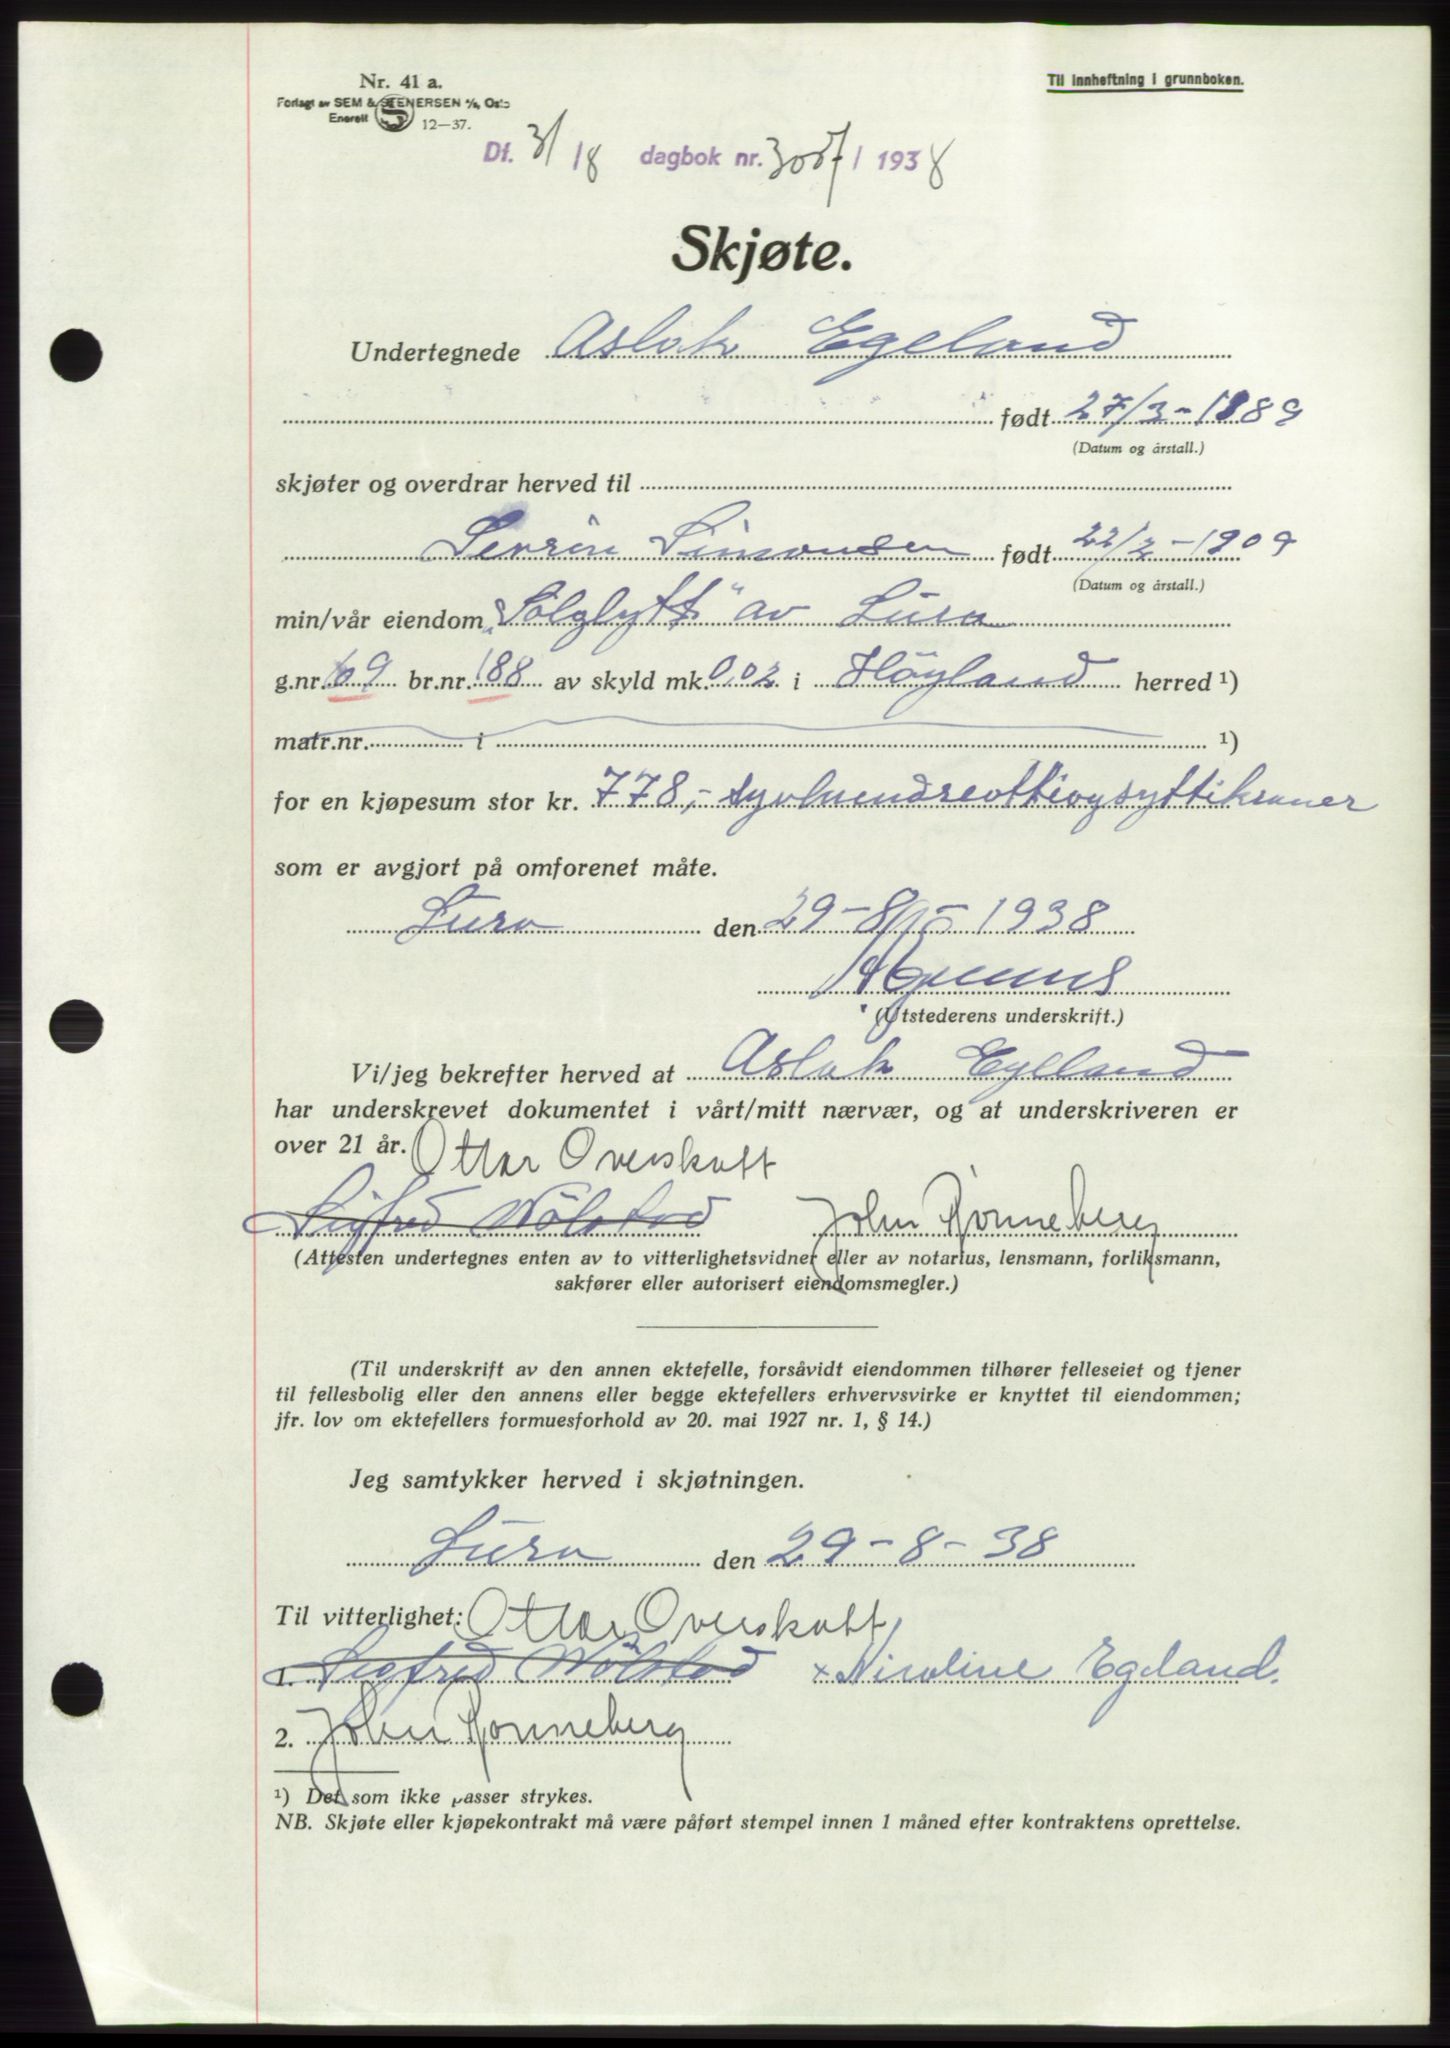 Nr. 41 a.
Til innheftning i grunnboken.
Forlagt av SEM & STENERSEN A/S, Oslo
Enerett
12—37.
Df. 31/8 dagbok nr. 3057/1938
Skjøte.
Undertegnede Aslak Egeland
født 27/3-1889
(Datum og årstall.)
skjøter og overdrar herved til
Sevrin Simonsen født 22/2-1909
(Datum og årstall.)
min/vår eiendom „Solglytt" av Lura
g.nr. 69 br.nr. 188 av skyld mk. 0,02 i Høyland herred ¹)
matr.nr. i ¹)
for en kjøpesum stor kr. 778,- syvhundreottiogsyttikroner
som er avgjort på omforenet måte.
Lura den 29-8 - 1938
(Utstederens underskrift.)
Vi/jeg bekrefter herved at Aslak Egeland
har underskrevet dokumentet i vårt/mitt nærvær, og at underskriveren er
over 21 år. Ottar Overskott
Sigfred Wölstad John Rönneberg
(Attesten undertegnes enten av to vitterlighetsvidner eller av notarius, lensmann, forliksmann,
sakfører eller autorisert eiendomsmegler.)
(Til underskrift av den annen ektefelle, forsåvidt eiendommen tilhører felleseiet og tjener
til fellesbolig eller den annens eller begge ektefellers erhvervsvirke er knyttet til eiendommen;
jfr. lov om ektefellers formuesforhold av 20. mai 1927 nr. 1, § 14.)
Jeg samtykker herved i skjøtningen.
Lura den 29-8-38
Til vitterlighet: Ottar Overskott
1. Sigfred Wölstad x Nicoline Egeland.
2. John Rönneberg
¹) Det som ikke passer strykes.
NB. Skjøte eller kjøpekontrakt må være påført stempel innen 1 måned efter kontraktens oprettelse.